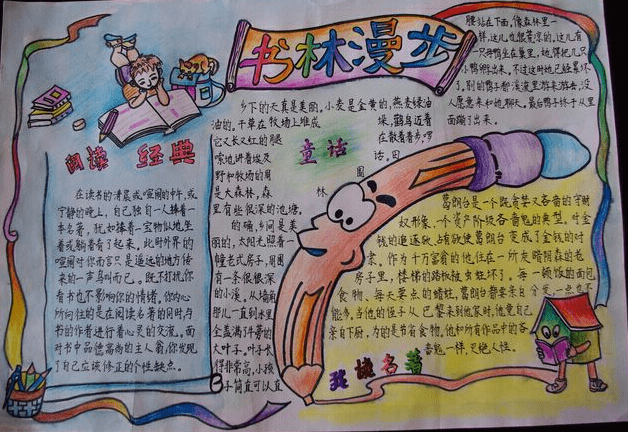 书林漫步
阅读 经典
在读书的清晨或喧闹的中午,或
宁静的晚上,自己独自一人捧着一
本名著,犹如捧着一宝物似地坐
着或躺着看了起来,此时外界的
喧闹对你而言只是遥远的地方传
来的一声鸟叫而已。既不打扰你
看书也不影响你的情绪,你内心
所向往的是在阅读名著的同时与
书的作者进行着心灵的交流。面
对书中品德高尚的主人翁,你发现
了自己应该修正的个性缺点。
童话
乡下的天真是美丽。小麦是金黄的,燕麦绿油
油的。干草在牧场上堆成 垛,鹳鸟迈着
它又长又红的腿 在散着步,啰
嗦地讲着埃及 话。田
野和牧场的周 围
是大森林,森 林
里有些很深的池塘。
的确,乡间是美
丽的,太阳光照着一
幢老式房子,周围
有一条很深
的小溪。从墙角
那儿一直到水里
全盖满了牛蒡的
大叶子。叶子长
得非常高,小孩
子简直可以直
腰站在下面。像森林里一
样,这儿也很荒凉的。这儿有
一只母鸭坐在巢里,她得把几只
小鸭孵出来。不过这时她已经累坏
了。别的鸭子都溪流里游来游去,没
人愿意来和她聊天。最后鸭子终于从里
面蹦了出来。
我读名著
葛朗台是一个既贪婪又吝啬的守财
奴形象,一个资产阶级吝啬鬼的典型。对金
钱的追逐欲、占有欲使葛朗台变成了金钱的对
家,作为千万富翁的他,住在一所灰暗阴森的老
房子里,楼梯的踏板被虫蛀坏了。每一顿饭的面包
食物、每天要点的蜡烛,葛朗台都要亲自分发一点也不
能多,当他的侄子从巴黎来到他家时,他竟自己
亲自下厨,为的是节省食物。他和所有作品中的吝
啬鬼一样,灭绝人性。